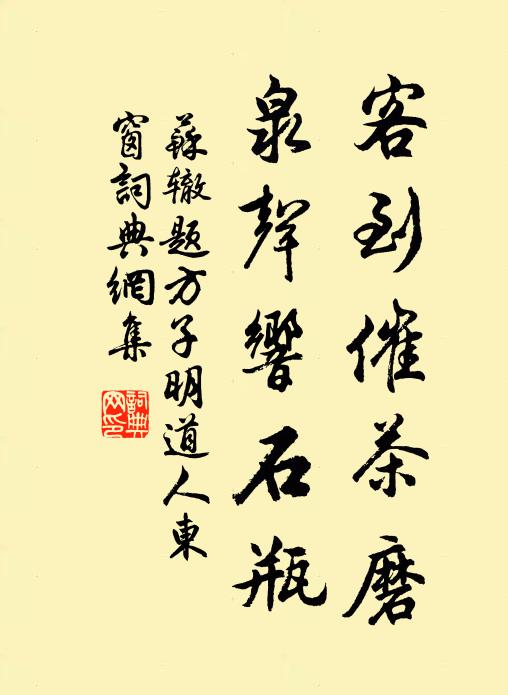 客到催茶磨
泉聲響石瓶
蘇轍題方子明道人東
窗詞典網集
詞典
网印